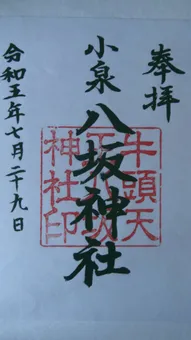 奉拝
小泉
八坂神社
牛頭天
神社印
令和五年七月二十九日